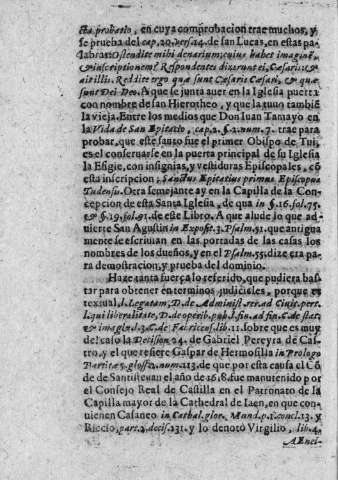 cta probatio, en cuya comprobacion trae muchos, y
se prueba del cap. 20. vers. 24. de san Lucas, en estas pa-
labras: Ostendite mihi denarium; cuius habet imaginẽ,
& inscriptionem? Respondentes dixerunt ei, Cæsaris: &
ait illis. Reddite ergo quæ sunt Cæsaris Cæsari, & quæ
sunt Dei Deo. A que se junta auer en la Iglesia puerta
con nombre de san Hierotheo, y que la tuuo tambiẽ
la vieja. Entre los medios que Don Iuan Tamayo en
la Vida de San Epitacio, cap. 2. §. 2. num. 7. trae para
probar, que este santo fue el primer Obispo de Tui,
es el conseruarse en la puerta principal de su Iglesia
la Efigie, con insignias, y vestiduras Episcopales, cõ
esta inscripcion; Sanctus Epitatius primus Episcopus
Tudensis. Otra semejante ay en la Capilla de la Con-
cepcion de esta Santa Iglesia, de qua in §. 16. fol. 75.
& §. 19. fol. 91. de este Libro. A que alude lo que ad-
uierte San Agustin in Exposit. 3. Psalm. 51. que antigua
mente se escriuian en las portadas de las casas los
nombres de los dueños, y en el Psalm. 55. dize era pa-
ra demostracion, y prueba del dominio.
Haze tanta fuerça lo referido, que pudiera bas-
tar para obtener en terminos judiciales, porque es
textual, l. Legatam, D. de Administ. rer. ad Ciuit. pert.
l. qui liberalitate, D. de operib. pub. l. fin. ad fin. C. de stat.
& imagin. l. 3. C. de lib. 11. sobre que es muy
del caso la Decision 24. de Gabriel Pereyra de Cas-
tro, y el que refiere Gaspar de Hermosilla in Prologo
Partitæ 5. glossa num. 113. de que por esta causa el Cõ
de de Santisteuan el año de 1618. fue manutenido por
el Consejo Real de Castilla en el Patronato de la
Capilla mayor de la Cathedral de Iaen, en que con-
uienen Casaneo in Cathal. glor. Mund. p. 1. concl. 13. y
Riccio, part. 2. decis. 231. y lo denotò Virgilio, lib. 4.
A Enei-